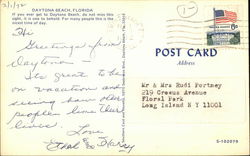 3/1/72
DAYTONA BEACH, FLORIDA
If you ever get to Daytona Beach, do not miss this
sight, it is one to behold. For many people this is the
nicest time of day.
Hi
Greetings from
Daytona
Its great to be
on vacation and
seeing how older
people live their
lives.
Love
Ethel & Harvey
POST CARD
Address
Mr & Mrs Rudi Portney
219 Crocus Avenue
Floral Park
Long Island N Y 11001